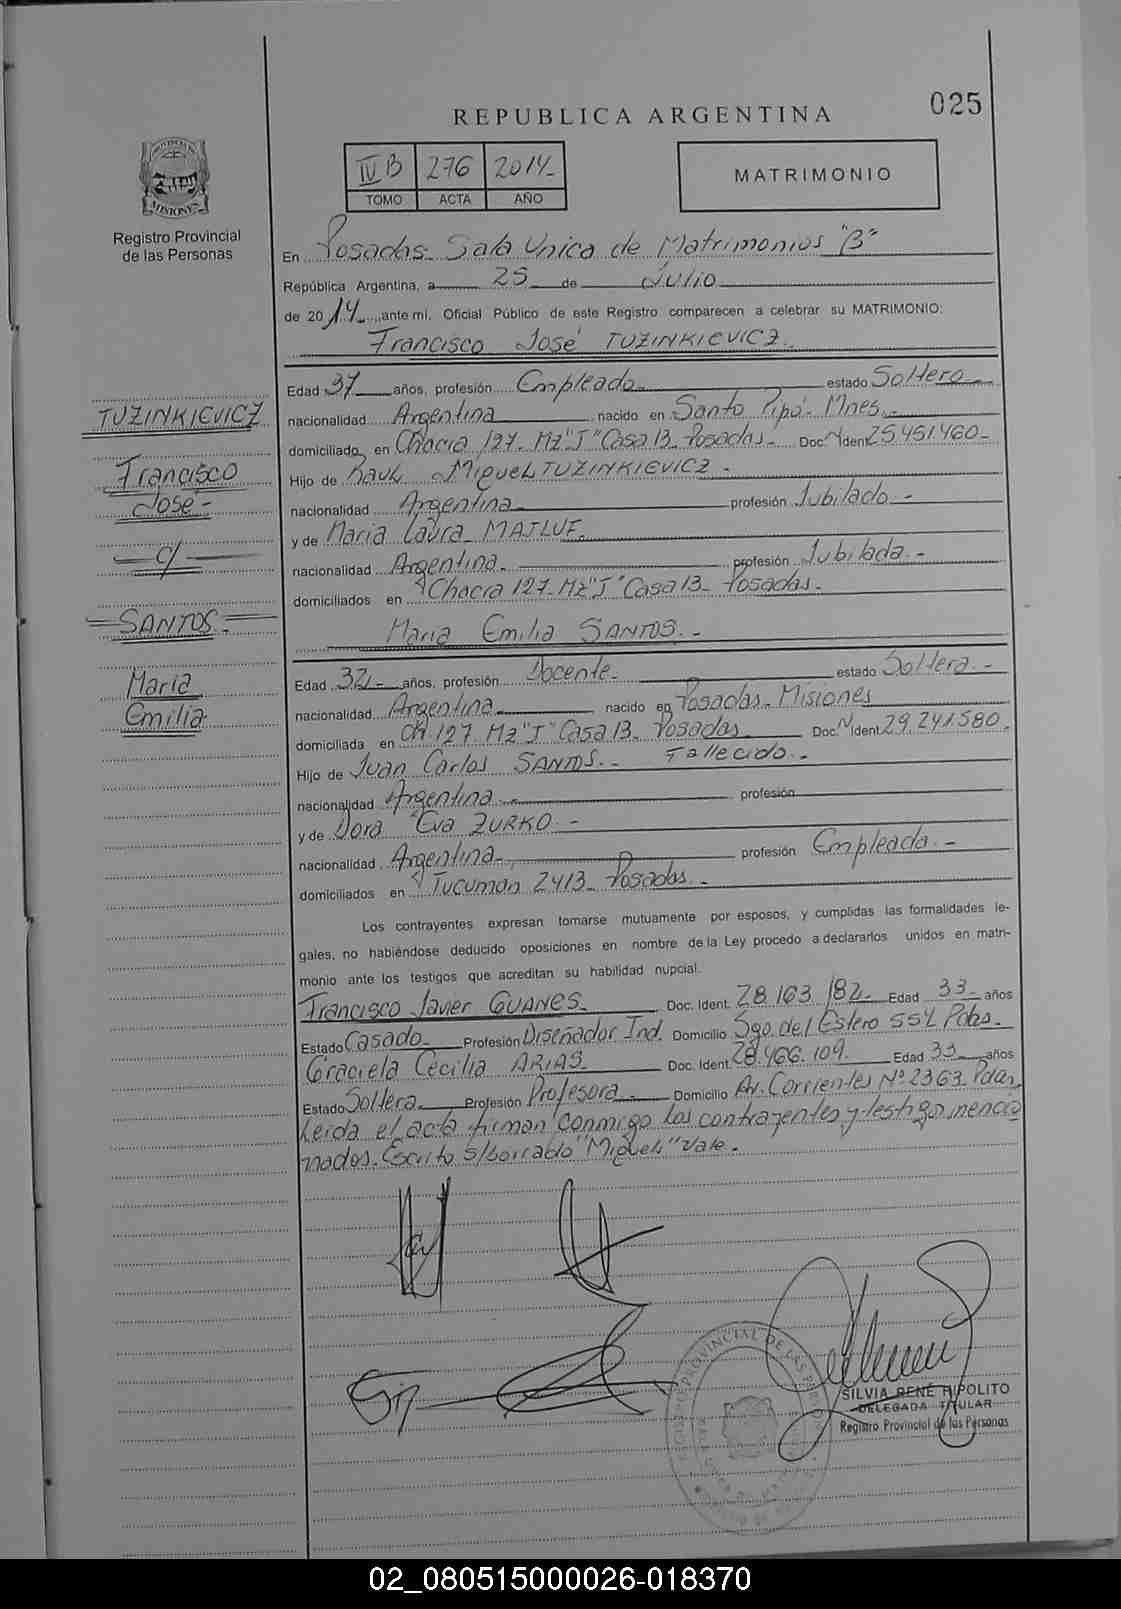 REPUBLICA ARGENTINA
025
IV B 276 2014-
TOMO ACTA AÑO
MATRIMONIO
PROVINCIA DE
MISIONES
Registro Provincial
de las Personas
En Posadas- Sala Unica de Matrimonios "B"
República Argentina, a 25 de Julio
de 2014 ante mi, Oficial Público de este Registro comparecen a celebrar su MATRIMONIO:
Francisco José TUZINKIEVICZ
Edad 37 años, profesión Empleado estado Soltero
nacionalidad Argentina nacido en Santo Pipó- Mnes.-
domiciliado en Chacra 127- Mz "J" Casa 13- Posadas- Doc. N Ident 25.451.460-
Hijo de Raul Miguel TUZINKIEVICZ -
nacionalidad Argentina profesión Jubilado -
y de Maria Laura MAJLUF.
nacionalidad Argentina. profesión Jubilada.-
domiciliados en Chacra 127- Mz "J" Casa 13- Posadas-
Maria Emilia SANTOS.-
Edad 32- años, profesión Docente- estado Soltera.-
nacionalidad Argentina nacido en Posadas- Misiones
domiciliada en CH 127 Mz "J" Casa 13- Posadas Doc. N Ident 29.241.580.
Hijo de Juan Carlos SANTOS.- Fallecido.-
nacionalidad Argentina.- profesión
y de Dora Eva ZURKO.-
nacionalidad Argentina- profesión Empleada.-
domiciliados en Tucuman 2413- Posadas.-
Los contrayentes expresan tomarse mutuamente por esposos, y cumplidas las formalidades le-
gales, no habiéndose deducido oposiciones en nombre de la Ley procedo a declararlos unidos en matri-
monio ante los testigos que acreditan su habilidad nupcial.
Francisco Javier GUANES- Doc. Ident. 28.163.182- Edad 33- años
Estado Casado- Profesión Diseñador Ind. Domicilio Sgo. del Estero 554 Pdas.-
Graciela Cecilia ARIAS- Doc. Ident. 28.466.109. Edad 33- años
Estado Soltera- Profesión Profesora- Domicilio Av. Corrientes Nº 2363- Pdas.
Leida el acta firman conmigo los contrayentes y testigos mencio
nados. Escrito S/borrado "Miguel" Vale.
TUZINKIEVICZ
Francisco
José-
c/
SANTOS.-
Maria
Emilia
SILVIA RENÉ HIPOLITO
DELEGADA TITULAR
Registro Provincial de las Personas
02_080515000026-018370